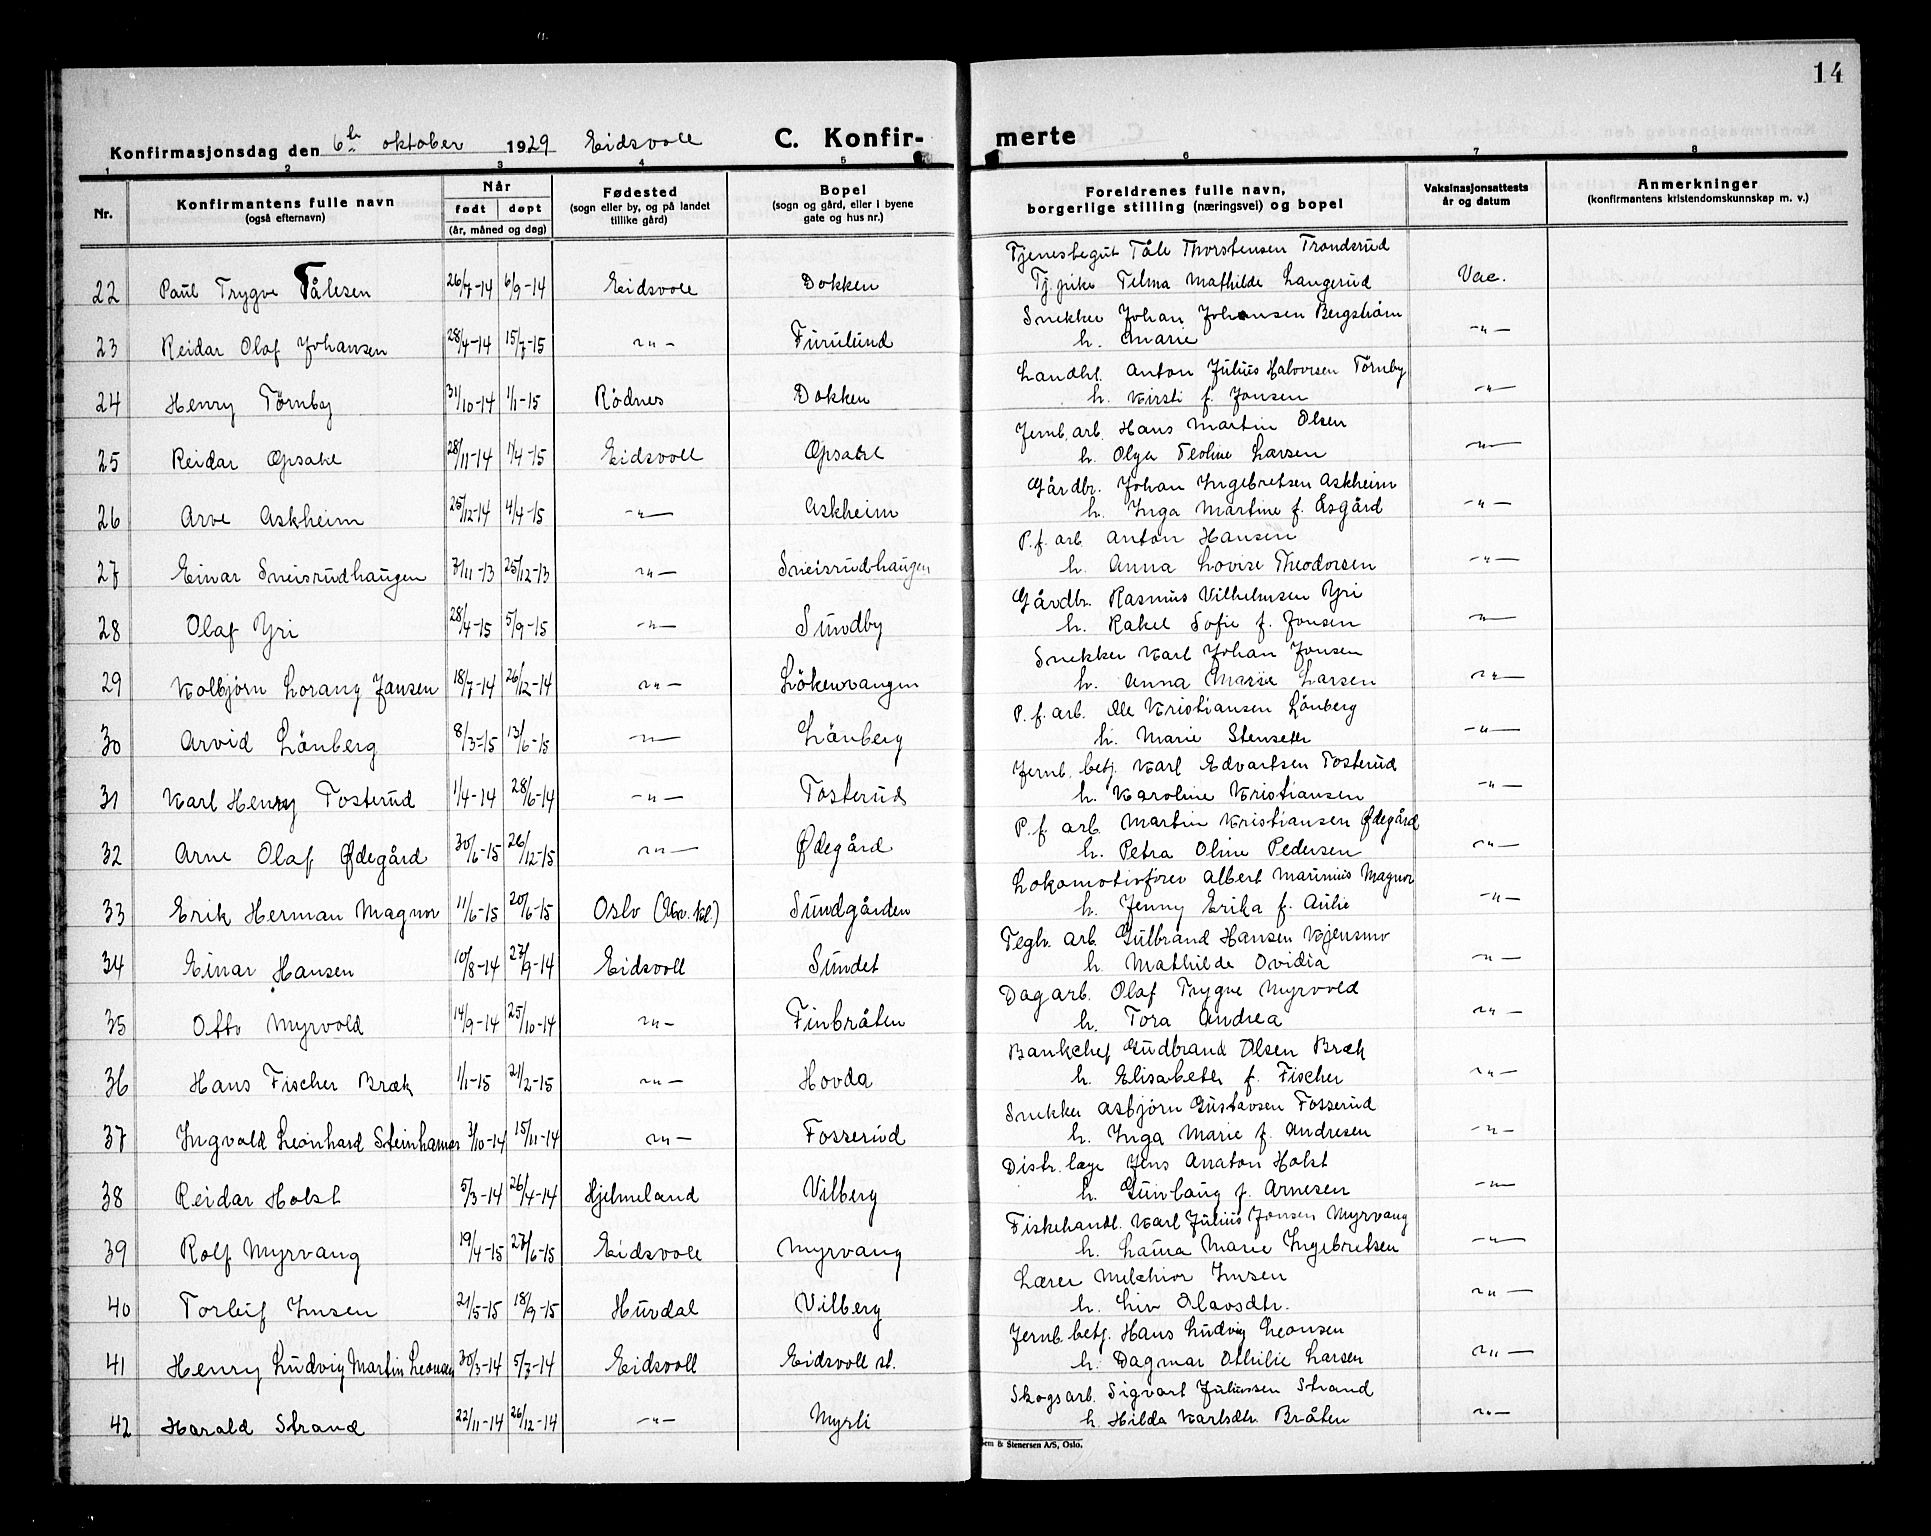 14
Konfirmasjonsdag den 6te oktober 1929 Eidsvoll C. Konfir- merte
1 2 3 4 5 6 7 8
Nr. Konfirmantens fulle navn (også efternavn) Når født døpt (år, måned og dag) Fødested (sogn eller by, og på landet tillike gård) Bopel (sogn og gård, eller i byene gate og hus nr.) Foreldrenes fulle navn, borgerlige stilling (næringsvei) og bopel Vaksinasjonsattests år og datum Anmerkninger (konfirmantens kristendomskunnskap m. v.)
Tjenestegut Tåle Thorstensen Trondsrud
22 Paul Trygve Tålesen 26/7-14 6/9-14 Eidsvoll Dokken Tj. pike Telma Mathilde Langerud Vac.
Snekker Johan Johansen Bergstrøm
23 Reidar Olaf Johansen 28/4-14 15/7-15 -"- Furulund h. Marie -"-
Landhl. Anton Julius Halvorsen Tørnby
24 Henry Tørnby 31/10-14 1/1-15 Rödnes Dokken h. Kirsti f. Jonsen -"-
Jernb. arb. Hans Martin Olsen
25 Reidar Opsahl 28/11-14 1/4-15 Eidsvoll Opsahl h. Olga Teoline Larsen -"-
Gårdbr. Johan Ingebretsen Askheim
26 Arve Askheim 25/12-14 4/4-15 -"- Askheim h. Inga Martine f. Åsgård -"-
P. f. arb. Anton Hansen
27 Einar Sneisrudhaugen 7/11-13 25/12-13 -"- Sneisrudhaugen h. Anna Lovise Theodorsen -"-
Gårdbr. Rasmus Vilhelmsen Yri
28 Olaf Yri 28/4-15 5/9-15 -"- Sundby h. Rakel Sofie f. Jonsen -"-
Snekker Karl Johan Jonsen
29 Kolbjörn Lorang Jansen 18/7-14 26/12-14 -"- Lökenvangen h. Anna Marie Larsen -"-
P. f. arb. Ole Kristiansen Lönberg
30 Arvid Lönberg 8/3-15 13/6-15 -"- Lönberg h. Marie Stenseth -"-
Jernb. betj. Karl Edvartsen Tosterud
31 Karl Henry Tosterud 1/4-14 28/6-14 -"- Tosterud h. Karoline Kristiansen -"-
P. f. arb. Martin Kristiansen Ødegård
32 Arne Olaf Ødegård 30/6-15 26/12-15 -"- Ødegård h. Petra Oline Pedersen -"-
Lokomotivfører Albert Maurius Magnor
33 Erik Herman Magnor 11/6-15 20/6-15 Oslo Sundgården h. Jenny Erika f. Aulie -"-
Teglv. arb. Gulbrand Hansen Kjensmo
34 Einar Hansen 10/8-14 27/9-14 Eidsvoll Sundet h. Mathilde Ovidia -"-
Dagarb. Olaf Trygve Myrvold
35 Otto Myrvold 14/9-14 25/10-14 -"- Finbråten h. Tora Andrea -"-
Bankchef Gudbrand Olsen Bræk
36 Hans Fischer Bræk 1/1-15 21/2-15 -"- Hovda h. Elisabeth f. Fischer -"-
Snekker Asbjörn Gustavsen Fosserud
37 Ingvald Leonhard Steinhamar 3/10-14 15/11-14 -"- Fosserud h. Inga Marie f. Andresen -"-
Distr. læge Jens Anaton Holst
38 Reidar Holst 5/3-14 26/4-14 Hjelmeland Vilberg h. Gunlaug f. Arnesen -"-
Fiskehandl. Karl Julius Jonsen Myrvang
39 Rolf Myrvang 19/4-15 27/6-15 Eidsvoll Myrvang h. Laura Marie Ingebretsen -"-
Lærer Melchior Imsen
40 Torleif Imsen 21/5-15 18/9-15 Hurdal Vilberg h. Liv Olavsdtr. -"-
Jernb. betj. Hans Ludvig Leonsen
41 Henry Ludvig Martin Leonsen 30/3-14 5/7-14 Eidsvoll Eidsvoll st. h. Dagmar Othilie Larsen -"-
Skogsarb. Sigvart Juliussen Strand
42 Harald Strand 22/11-14 26/12-14 -"- Myrli h. Hilda Karlsdtr. Bråten -"-
Sem & Stenersen A/S, Oslo.